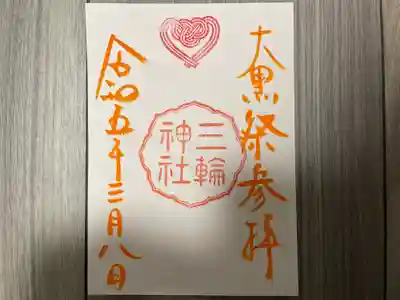 大黒祭参拝
三輪
神社
令和五年三月八日